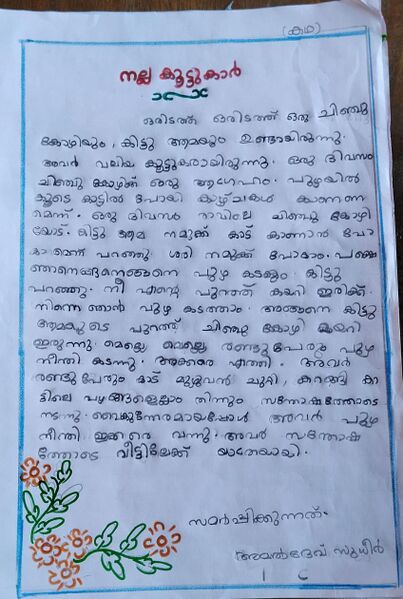 (കഥ)
നല്ല കൂട്ടുകാർ
ഒരിടത്ത് ഒരിടത്ത് ഒരു ചിഞ്ചു
കോഴിയും, കിട്ടു ആമയും ഉണ്ടായിരുന്നു.
അവർ വലിയ കൂട്ടുകാരായിരുന്നു. ഒരു ദിവസം
ചിഞ്ചു കോഴിക്ക് ഒരു ആഗ്രഹം. പുഴയിൽ
കൂടെ കാട്ടിൽ പോയി കാഴ്ചകൾ കാണണ
മെന്ന്. ഒരു ദിവസം രാവിലെ ചിഞ്ചു കോഴി
യോട് കിട്ടു ആമ നമുക്ക് കാട് കാണാൻ പോ
കാമെന്ന് പറഞ്ഞു. ശരി നമുക്ക് പോകാം. പക്ഷെ
ഞാനെങ്ങനെ പുഴ കടക്കും. കിട്ടു
പറഞ്ഞു. നീ എന്റെ പുറത്ത് കയറി ഇരിക്ക്.
നിന്നെ ഞാൻ പുഴ കടത്താം. അങ്ങനെ കിട്ടു
ആമയുടെ പുറത്ത് ചിഞ്ചു കോഴി കയറി
ഇരുന്നു. മെല്ലെ മെല്ലെ രണ്ടുപേരും പുഴ
നീന്തി കടന്നു. അക്കരെ എത്തി. അവർ
രണ്ടുപേരും കാട് മുഴുവൻ ചുറ്റി, കറങ്ങി കാ
ട്ടിലെ പഴങ്ങളെല്ലാം തിന്നും സന്തോഷത്തോടെ
നടന്നു. വൈകുന്നേരമായപ്പോൾ അവർ പുഴ
നീന്തി ഇക്കരെ വന്നു. അവർ സന്തോഷ
ത്തോടെ വീട്ടിലേക്ക് യാത്രയായി.
സമർപ്പിക്കുന്നത്.
അമൽദേവ് സുധീർ
1 C